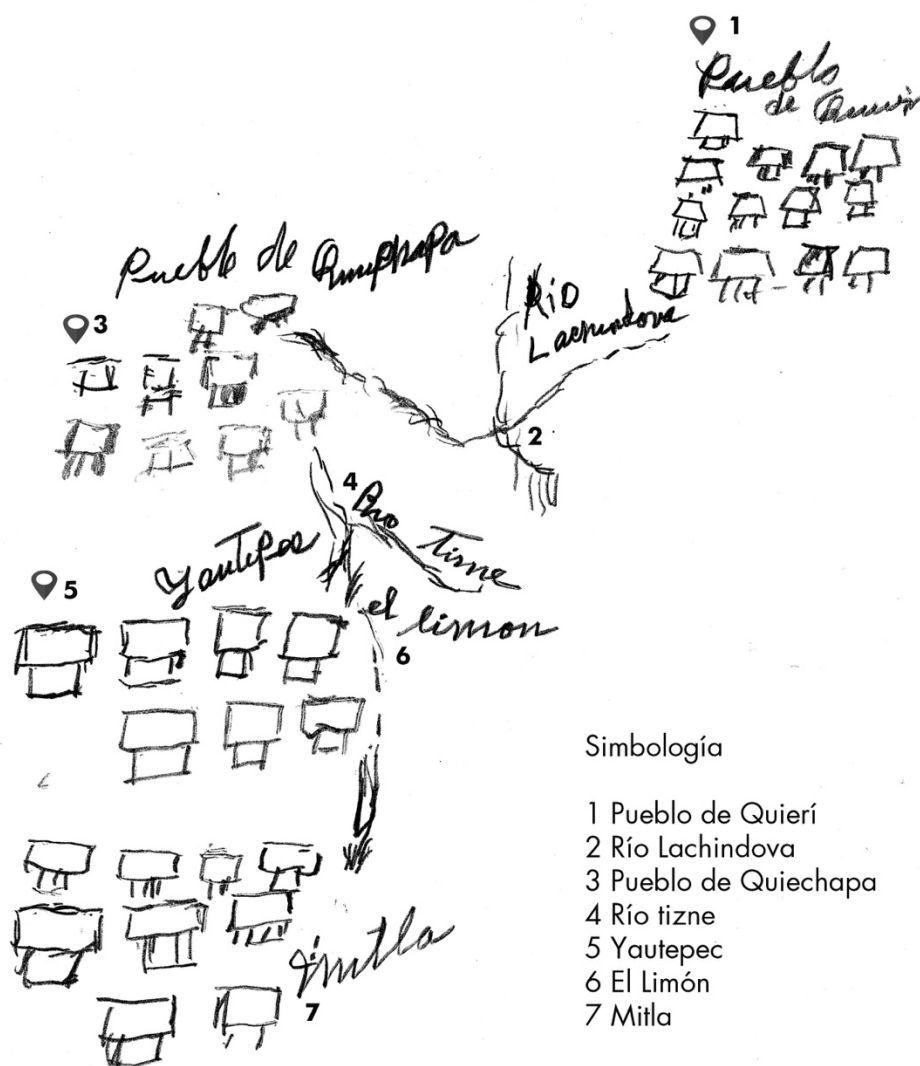 1
Pueblo
de Quieri
Pueblo de Quiechapa
3
RíO
Lachindova
2
4
Rio
Tizne
Yautepec
5
el limon
6
mitla
7
Simbología
1 Pueblo de Quierí
2 Río Lachindova
3 Pueblo de Quiechapa
4 Río tizne
5 Yautepec
6 El Limón
7 Mitla